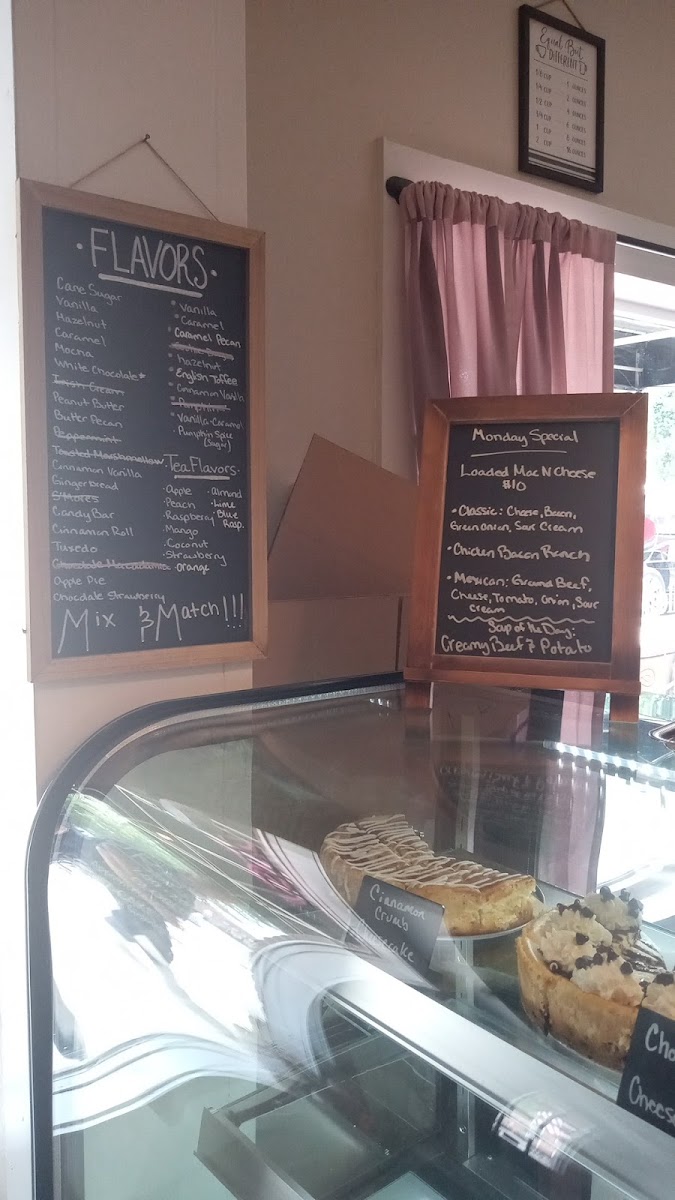 Equal But
DIFFERENT
1/8 CUP 1 OUNCES
1/4 CUP 2 OUNCES
1/2 CUP 4 OUNCES
3/4 CUP 6 OUNCES
1 CUP 8 OUNCES
2 CUP 16 OUNCES
• FLAVORS •
Cane Sugar
Vanilla
Hazelnut
Caramel
Mocha
White Chocolate*
Irish Cream
Peanut Butter
Butter Pecan
Peppermint
Toasted Marshmallow
Cinnamon Vanilla
Gingerbread
S'Mores
Candy Bar
Cinnamon Roll
Tuxedo
Chocolate Macadamia
Apple Pie
Chocolate Strawberry
* Vanilla
* Caramel
* Caramel Pecan
* Hazelnut
* English Toffee
* Cinnamon Vanilla
* Vanilla-Caramel
• Pumpkin Spice
(Sugar)
• Tea Flavors •
• Apple • almond
• Peach • Lime
• Raspberry • Blue
Rasp.
• Mango
• Coconut
• Strawberry
• orange
Mix & Match!!!
Monday Special
Loaded Mac N Cheese
$10
• Classic: Cheese, Bacon,
Green onion, Sour Cream
• Chicken Bacon Ranch
• Mexican: Ground Beef,
Cheese, Tomato, Onion, Sour
Cream
Soup of the Day:
Creamy Beef & Potato
Cinnamon
Crumb
Cheesecake
Cho
Cheese